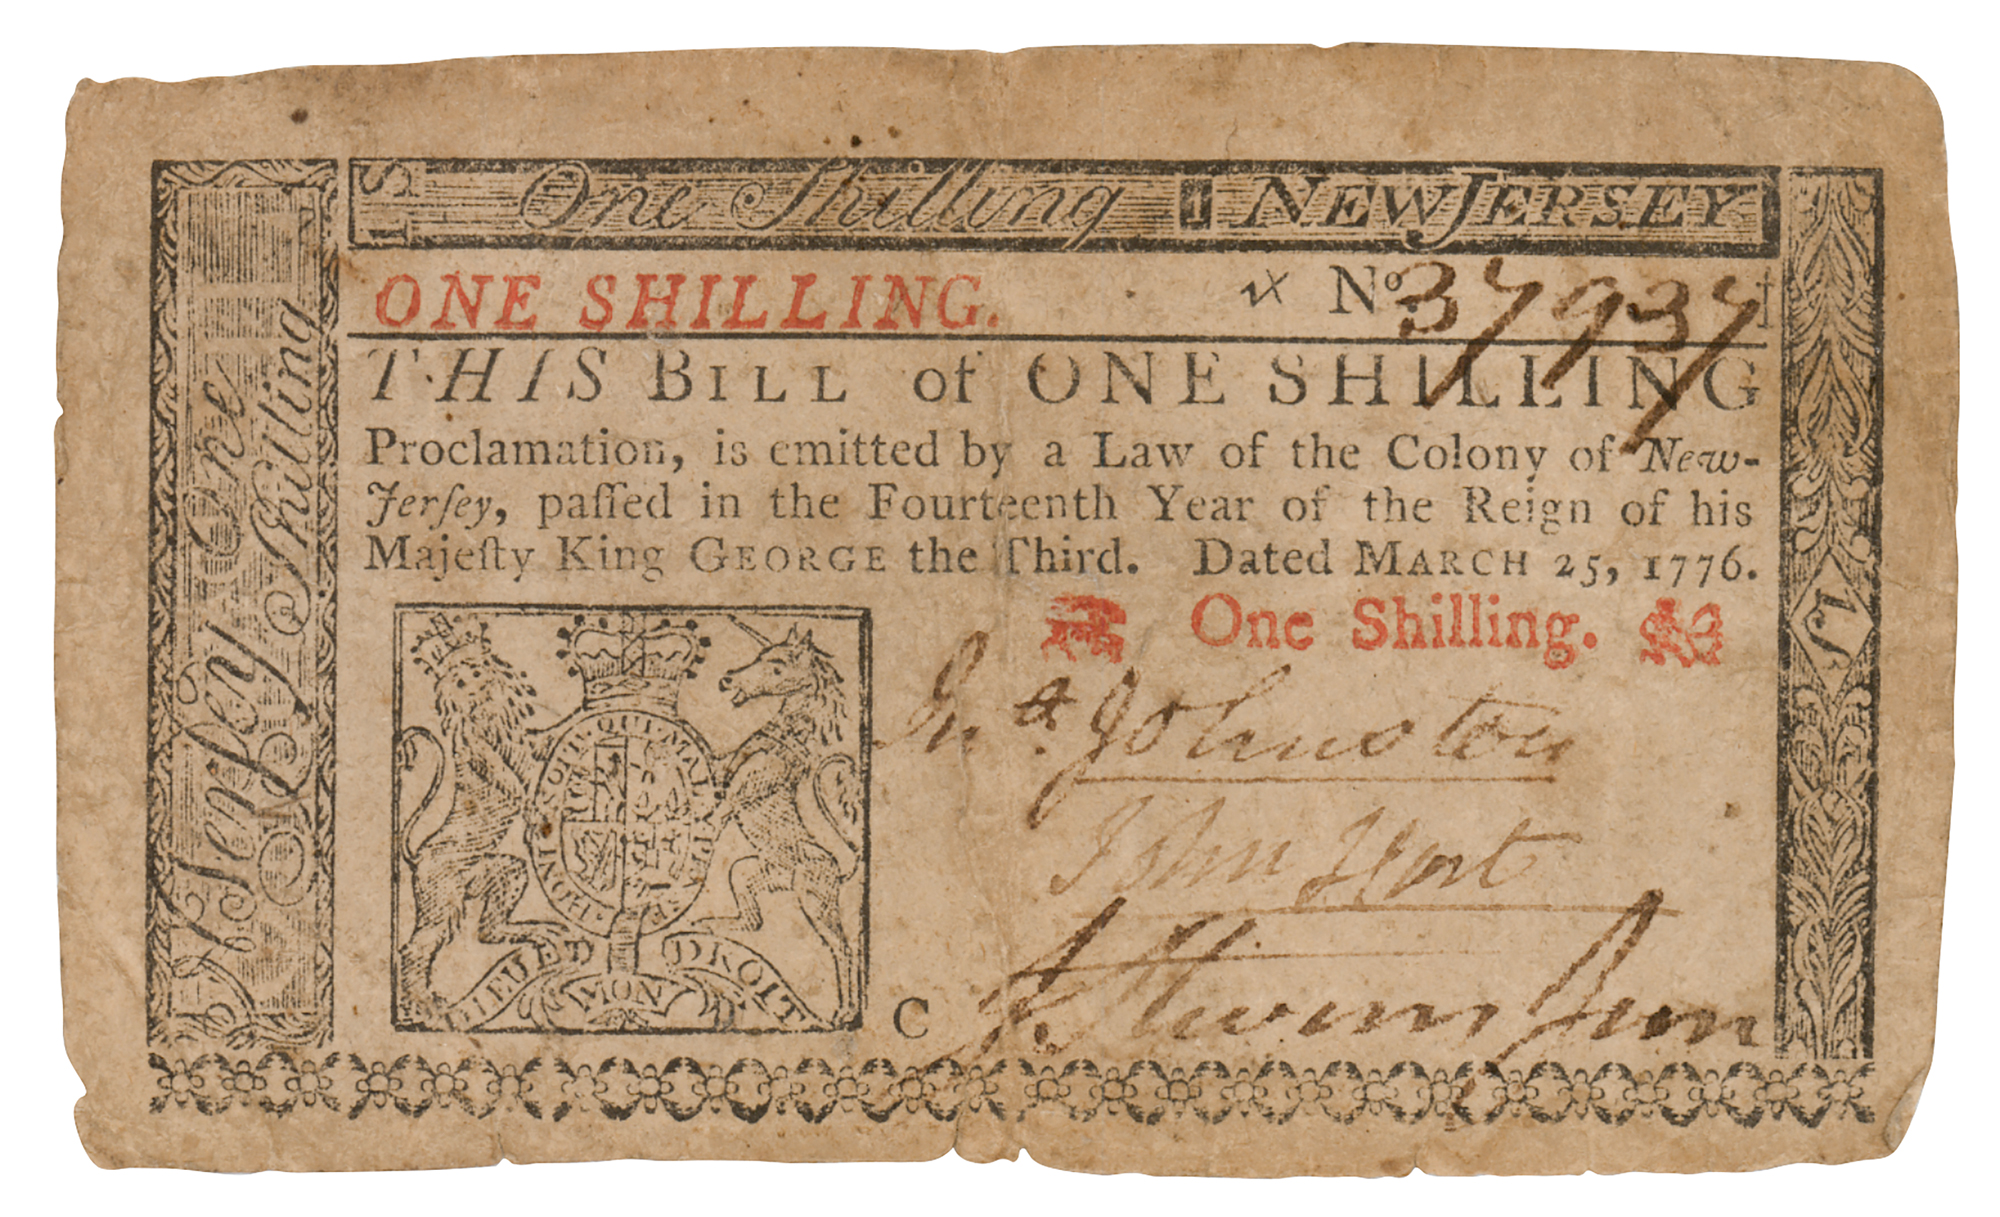 1S One Shilling 1 NEW JERSEY
ONE SHILLING. No. 37937
THIS BILL of ONE SHILLING
Proclamation, is emitted by a Law of the Colony of New-
Jerſey, paſſed in the Fourteenth Year of the Reign of his
Majeſty King GEORGE the Third. Dated MARCH 25, 1776.
One Shilling.
Jnº. Johnston
John Hart
J. Stevens Jun
C
HONI · SOIT · QUI · MAL · Y · PENSE
DIEU ET MON DROIT
N. Jerſey One Shilling
1S